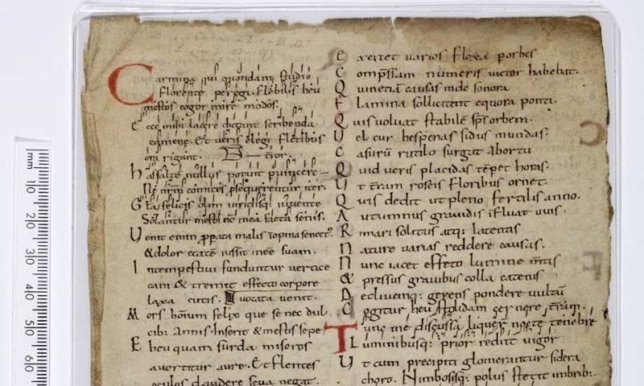 Carmina qui quondam studio
Florente peregi. Flebilis heu
mestos cogor inire modos.
Ecce mihi lacere dictant scribenda
camene. Et veris elegi fletibus
ora rigant. ror.
Has saltē nullus potuit puincere
Ne nrm comites psequerentur iter.
Gła felicis olim viridisq; iuvente
Solantur mesti nc mea fata senis.
Venit enim ppata malis inopina senect'
& dolor etatē iussit inee suam.
Intempestivi funduntur vertice
cani & tremit effeto corpore
laxa cutis. vocata venit.
Mors hominū felix que se nec dul
cibꝰ annis Inserit & mestis sepe
Eheu quam surda miseros
avertitur aure. Et flentes
oculos claudere seva negat.
Exercet varios flexa porbes
Compssam numeris victor habebat.
Quinetiā causas unde sonora
Flamina sollicitent equora ponti.
Quis volvat stabile sps orbem.
Vel cur hesperias sidus in undas
Casurū rutilo surgat ab ortu
Quid veris placidas tēpet horas.
Ut trām roseis floribus ornet.
Quis dedit ut pleno fertilis anno.
Autumnus gravidis ifluat uvis.
Rimari solitus atq; latentis
Nature varias reddere causas.
Nunc iacet effeto lumine mtis
& pressus gravibus colla catenis
Declivemq; gerens pondere vultū
Cogitur heu stolidam cernere trām.
Tunc me discussa liquer nocte tenebre
Luminibusq; prior rediit vigor
Ut cum precipiti glomerantur sidera
choro. Nimbosisq; polus stetit imbribꝰ.